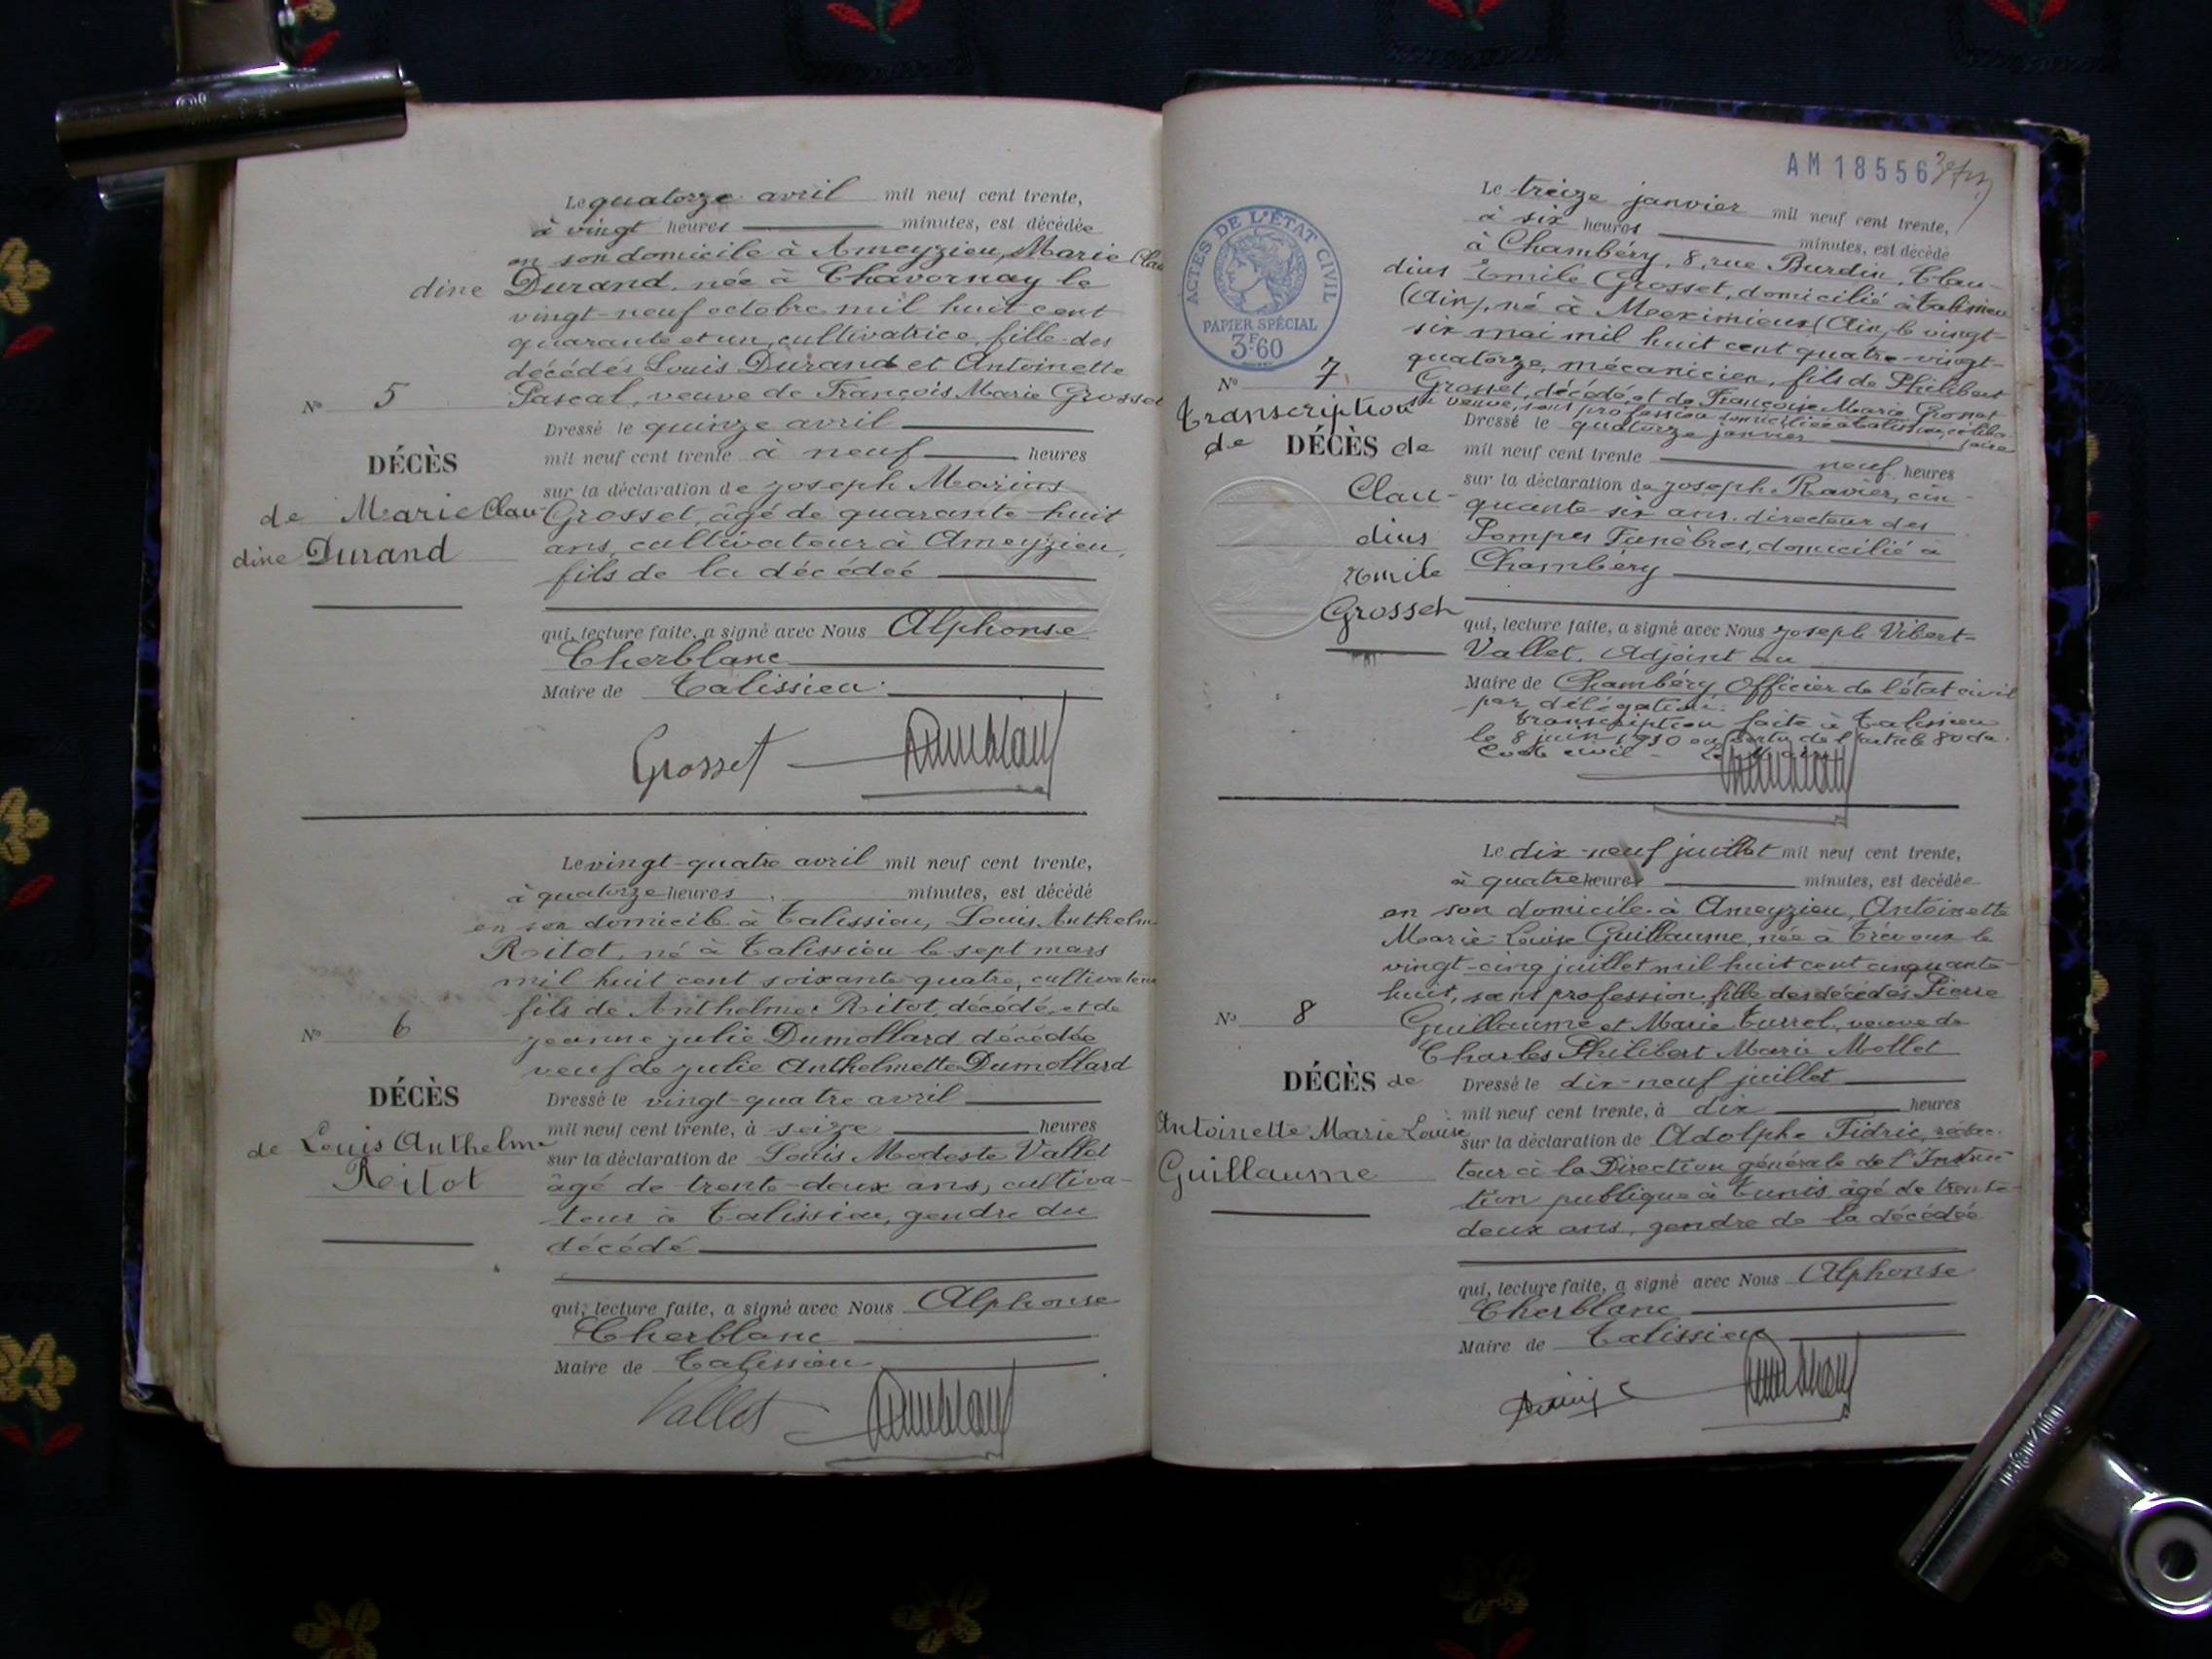 Le quatorze avril mil neuf cent trente,
à vingt heures minutes, est décédée
en son domicile à Ameyzieu, Marie Clau
dine Durand, née à Chavornay le
vingt-neuf octobre mil huit cent
quarante et un, cultivatrice, fille des
décédés Louis Durand et Antoinette
Pascal, veuve de François Marie Grosset
N° 5
Dressé le quinze avril
mil neuf cent trente à neuf heures
DÉCÈS
sur la déclaration de Joseph Marius
de Marie Clau
Grosset, âgé de quarante-huit
dine Durand
ans, cultivateur à Ameyzieu,
fils de la décédée
qui, lecture faite, a signé avec Nous Alphonse
Cherblanc
Maire de Talissieu.
Grosset
Le vingt-quatre avril mil neuf cent trente,
à quatorze heures minutes, est décédé
en son domicile à Talissieu, Louis Anthelme
Reitot, né à Talissieu le sept mars
mil huit cent soixante quatre, cultivateur
fils de Anthelme Reitot, décédé, et de
N° 6
Jeanne Julie Dumollard décédée
veuf de Julie Anthelmette Dumollard
DÉCÈS
Dressé le vingt-quatre avril
mil neuf cent trente, à seize heures
de Louis Anthelme
Reitot
sur la déclaration de Louis Modeste Vallet
âgé de trente-deux ans, cultiva-
teur à Talissieu, gendre du
décédé
qui, lecture faite, a signé avec Nous Alphonse
Cherblanc
Maire de Talissieu
Vallet
AM 18556
ACTES DE L'ÉTAT CIVIL
PAPIER SPÉCIAL
3F60
Le treize janvier mil neuf cent trente,
à six heures minutes, est décédé
à Chambéry, 8, rue Burdin, Clau-
dius Emile Grosset, domicilié à Talissieu
(Ain), né à Meximieux (Ain), le vingt-
six mai mil huit cent quatre-vingt-
quatorze, mécanicien, fils de Philibert
N° 7
Grosset, décédé, et de Françoise Marie Grosset
sa veuve, sans profession domiciliée à Talissieu, céliba-
taire
Transcription
de DÉCÈS de
Clau-
dius
Emile
Grosset
Dressé le quatorze janvier
mil neuf cent trente neuf heures
sur la déclaration de Joseph Ravier, cin-
quante-six ans, directeur des
Pompes Funèbres, domicilié à
Chambéry
qui, lecture faite, a signé avec Nous Joseph Vibert-
Vallet, Adjoint au
Maire de Chambéry, Officier de l'état civil
par délégation.
Transcription faite à Talissieu
le 8 juin 1930 en vertu de l'article 80 du
Code civil - Le Maire
Le dix-neuf juillet mil neuf cent trente,
à quatre heures minutes, est décédée
en son domicile à Ameyzieu, Antoinette
Marie-Louise Guillaume, née à Trévoux le
vingt-cinq juillet mil huit cent cinquante-
huit, sans profession, fille des décédés Pierre
N° 8
Guillaume et Marie Turrel, veuve de
Charles Philibert Marie Mollet
DÉCÈS de
Antoinette Marie Louise
Guillaume
Dressé le dix-neuf juillet
mil neuf cent trente, à dix heures
sur la déclaration de Adolphe Fidric, rédac-
teur à la Direction générale de l'Instruc
tion publique à Tunis, âgé de trente-
deux ans, gendre de la décédée
qui, lecture faite, a signé avec Nous Alphonse
Cherblanc
Maire de Talissieu